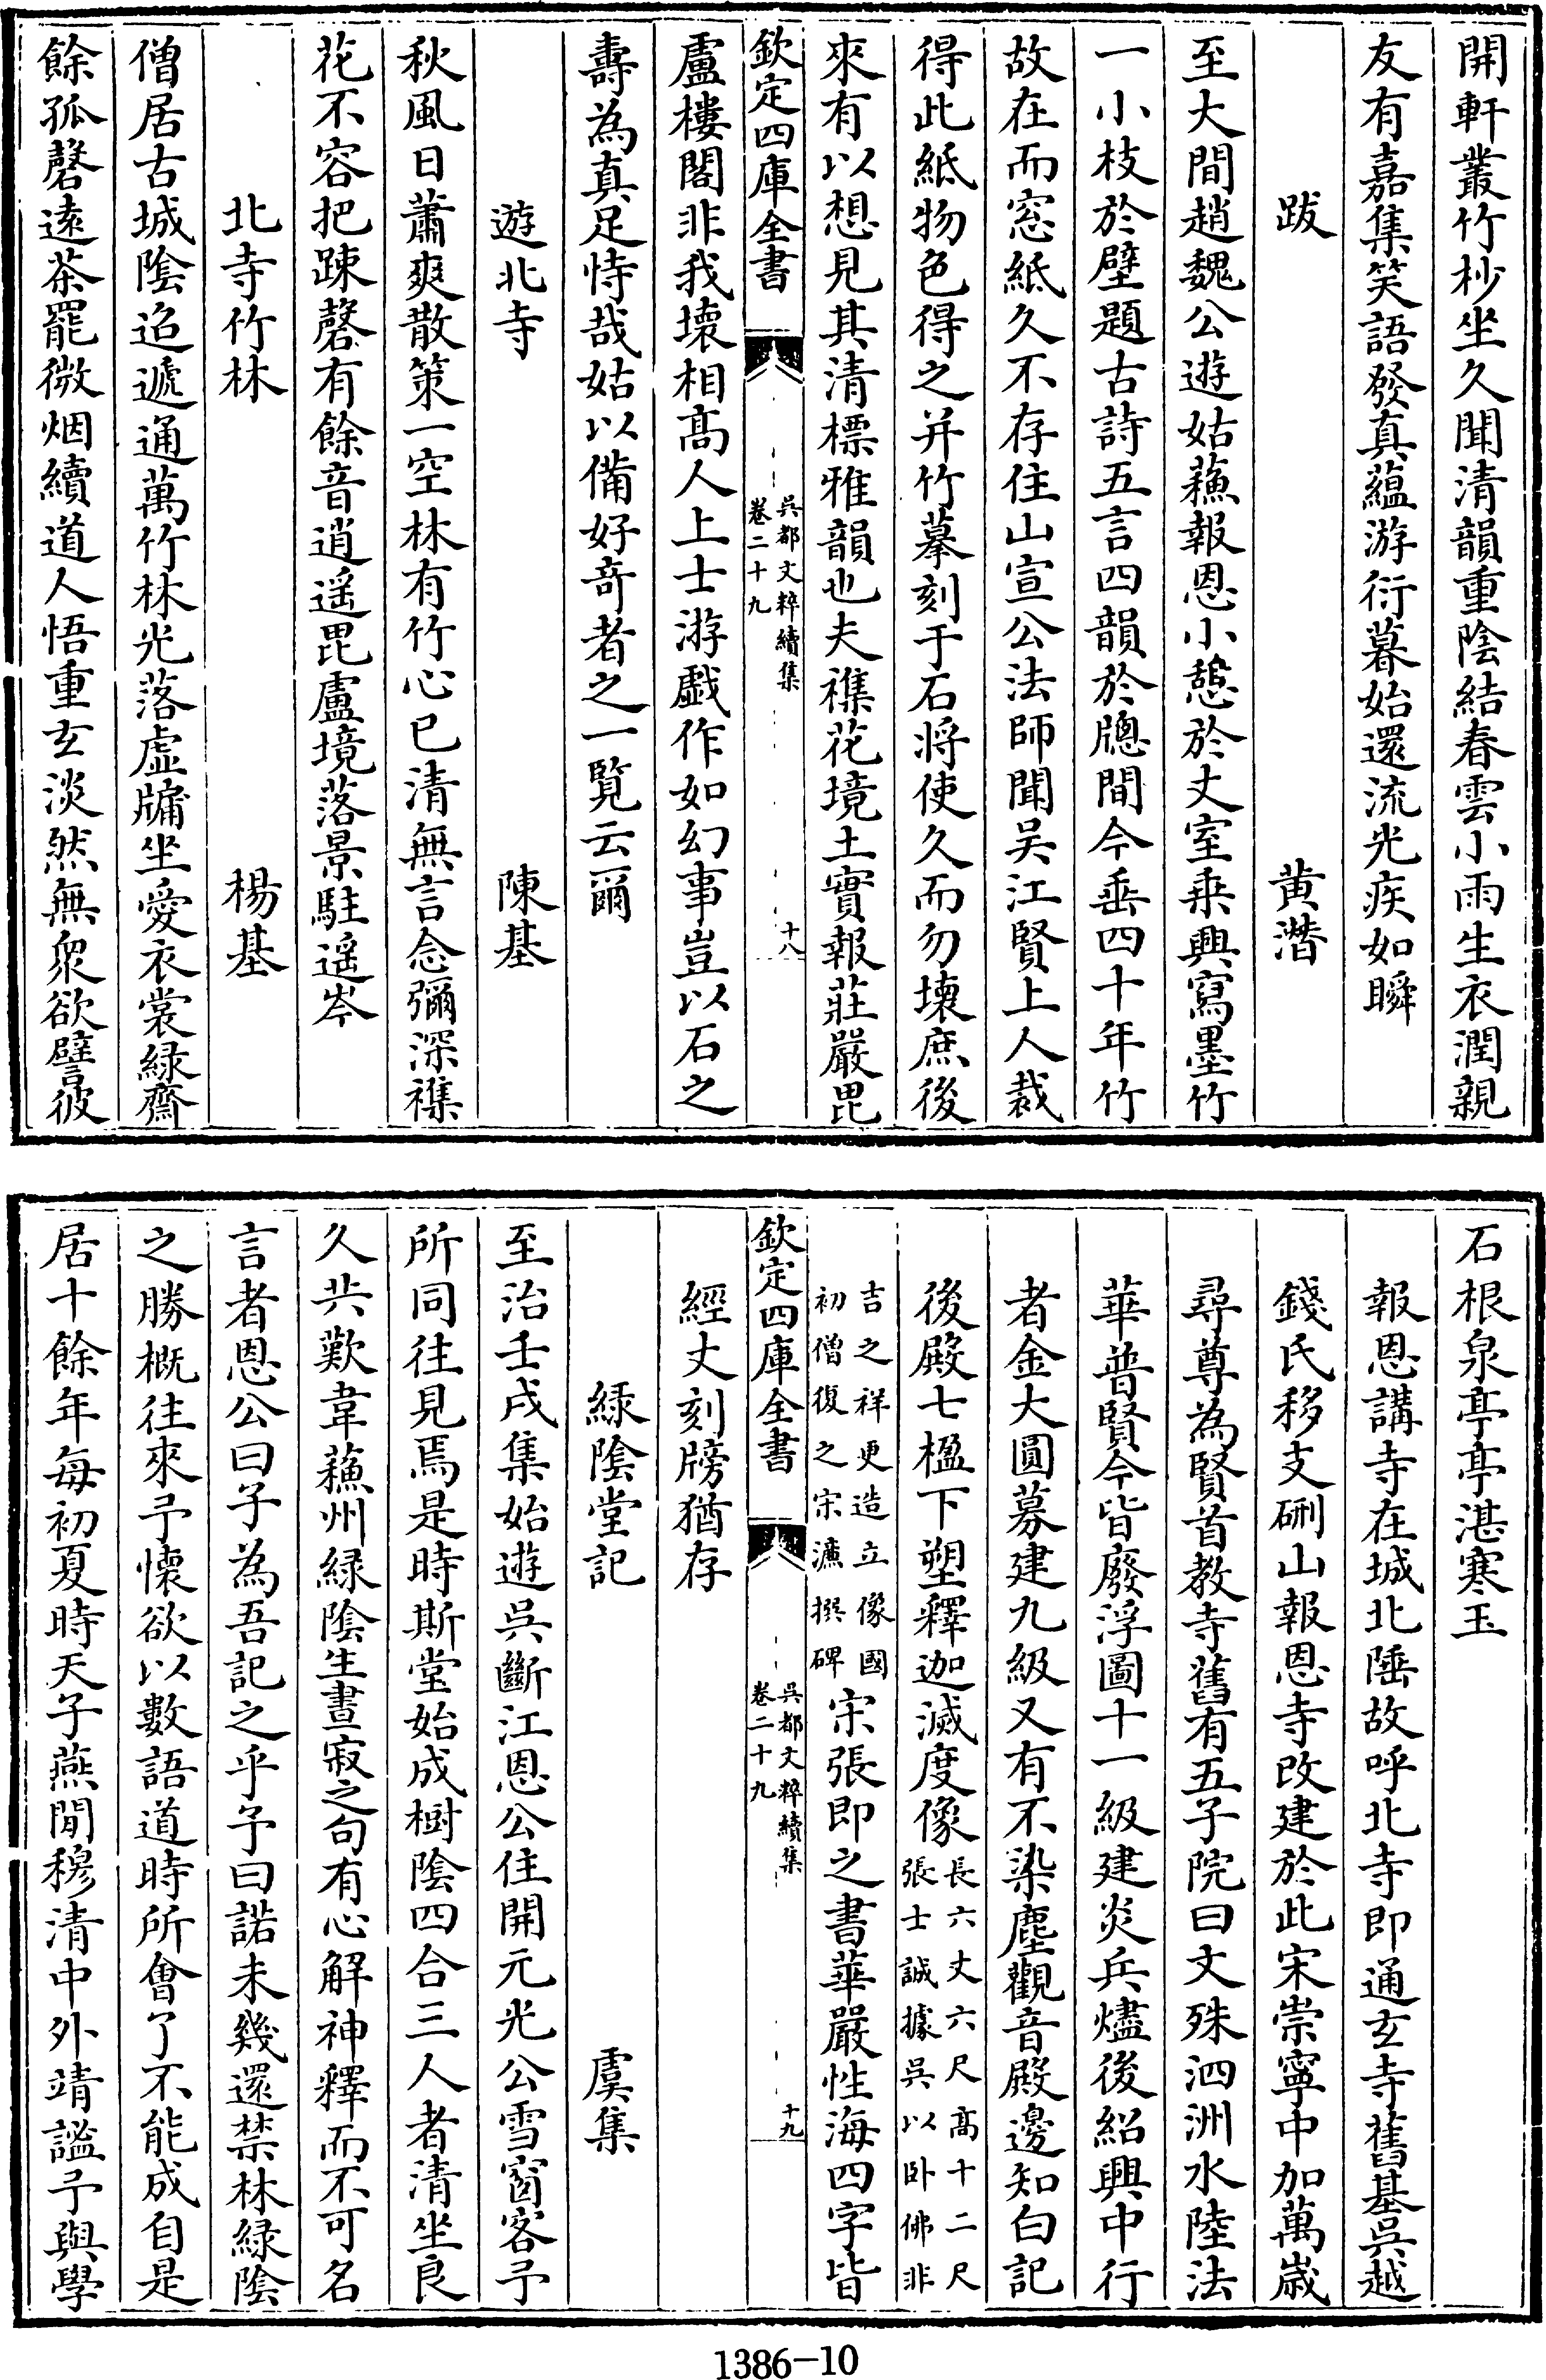 開軒叢竹杪坐久聞清韻重陰結春雲小雨生衣潤親
友有嘉集笑語發真藴游衍暮始還流光疾如瞬
跋　黄潛
至大間趙魏公遊姑蘓報恩小憩於丈室乗興寫墨竹
一小枝於壁題古詩五言四韻於牕間今垂四十年竹
故在而窓紙久不存住山宣公法師聞吴江賢上人裁
得此紙物色得之并竹摹刻于石將使久而勿壊庶後
來有以想見其清標雅韻也夫襍花境土實報莊嚴毘
欽定四庫全書　吳都文粹續集　卷二十九　十八
盧樓閣非我壊相髙人上士游戯作如幻事豈以石之
壽為真足恃哉姑以備好竒者之一覧云爾
遊北寺　陳基
秋風日蕭爽散策一空林有竹心已清無言念彌深襍
花不容把踈磬有餘音逍遥毘盧境落景駐遥岑
北寺竹林　楊基
僧居古城隂迢遞通萬竹林光落虚牗坐愛衣裳緑齋
餘孤磬逺茶罷微烟續道人悟重玄淡然無衆欲譬彼
石根泉亭亭湛寒玉
報恩講寺在城北陲故呼北寺即通玄寺舊基吳越
錢氏移支硎山報恩寺改建於此宋崇寧中加萬嵗
尋尊為賢首教寺舊有五子院曰文殊泗洲水陸法
華普賢今皆廢浮圖十一級建炎兵燼後紹興中行
者金大圓募建九級又有不染塵觀音殿邊知白記
後殿七楹下塑釋迦滅度像長六丈六尺髙十二尺張士誠據吳以卧佛非
吉之祥更造立像國初僧復之宋濂撰碑宋張即之書華嚴性海四字皆
欽定四庫全書　吳都文粹續集　卷二十九　十九
經丈刻牓猶存
緑隂堂記　虞集
至治壬戌集始遊吳斷江恩公住開元光公雪窗客予
所同往見焉是時斯堂始成樹隂四合三人者清坐良
久共歎韋蘓州緑隂生晝寂之句有心解神釋而不可名
言者恩公曰子為吾記之乎予曰諾未幾還禁林緑隂
之勝概往來予懷欲以數語道時所會了不能成自是
居十餘年每初夏時天子燕閒穆清中外靖謐予與學
1386-10